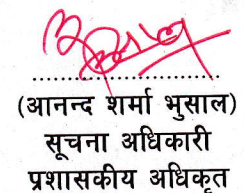 (आनन्द शर्मा भुसाल)
सूचना अधिकारी
प्रशासकीय अधिकृत